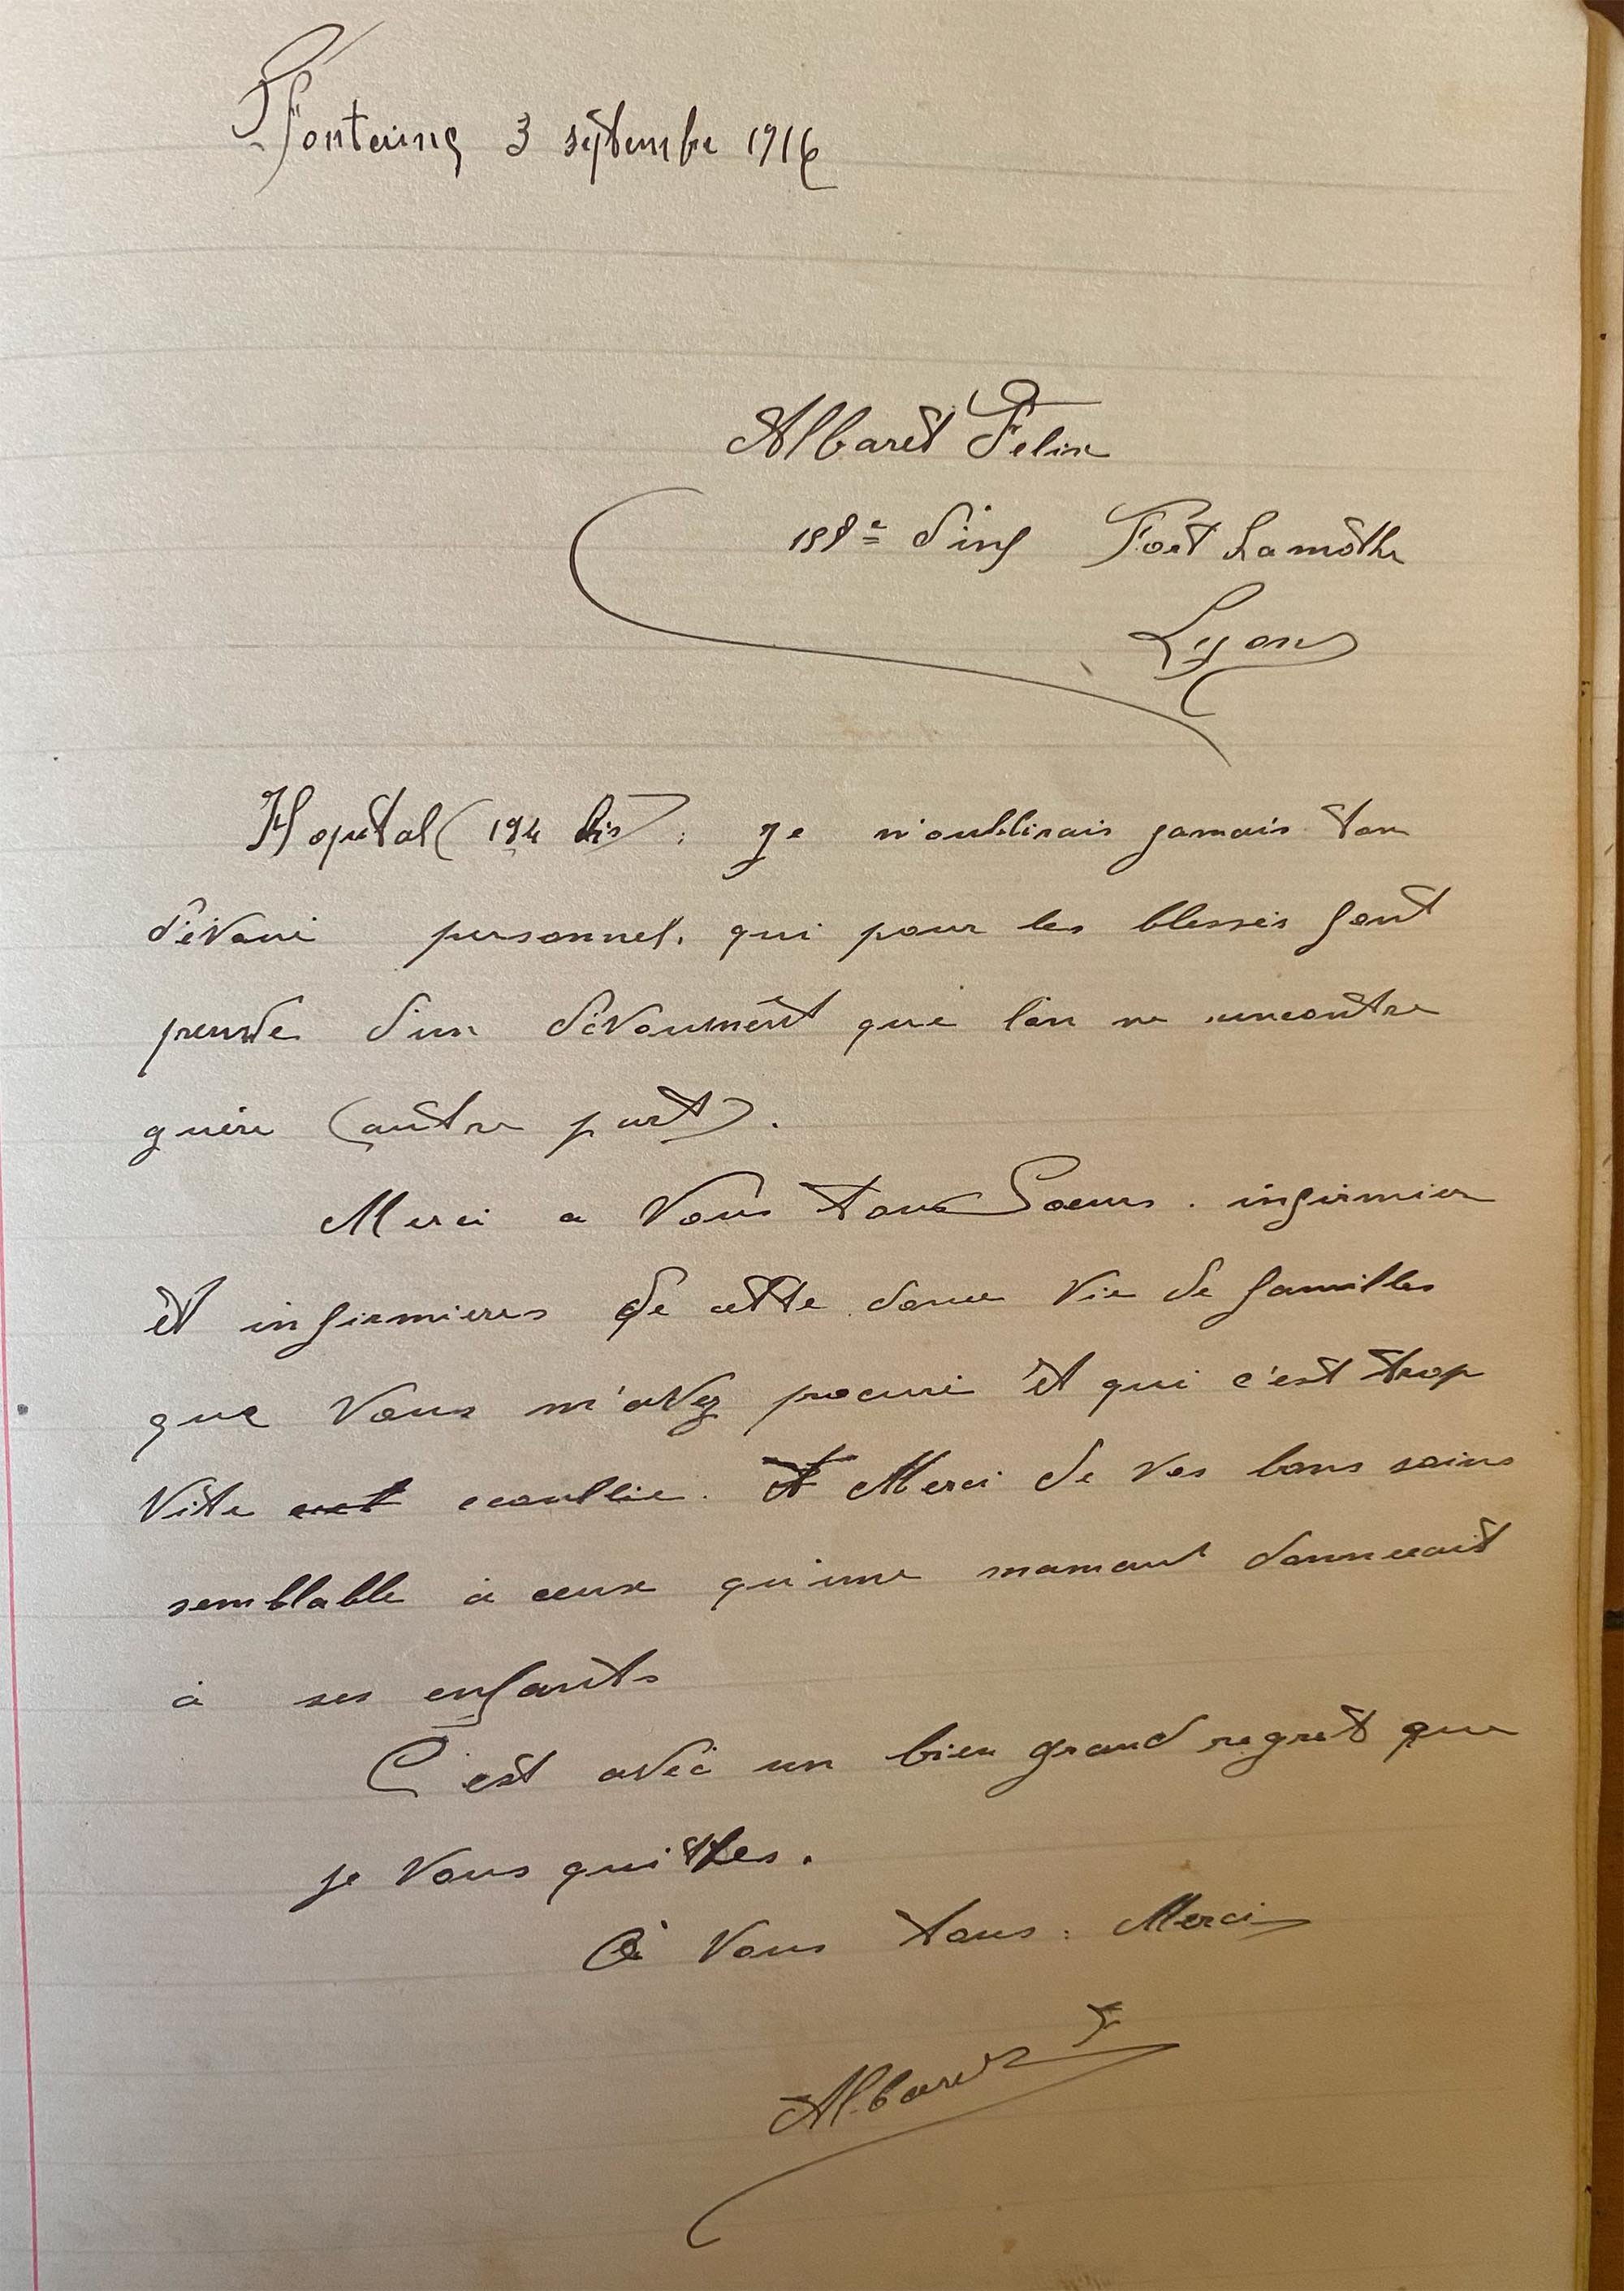 Fontaines 3 septembre 1916
Albaret Felix
158e d'inf Fort Lamothe
Lyon
Hopital (194 bis) : Je n'oublirais jamais ton
dévoué personnel, qui pour les blessés font
preuve d'un dévoument que l'on ne rencontre
guère (autre part).
Merci a Vous tous Soeurs. infirmier
et infirmieres de cette douce Vie de familles
que Vous m'avez procuré et qui c'est trop
Vite ecoullie. Merci de Vos bons soins
semblable à ceux qu'une mamant donnerait
à ses enfants
C'est avec un bien grand regret que
je Vous quittes.
à Vous tous : Merci
Albaret F